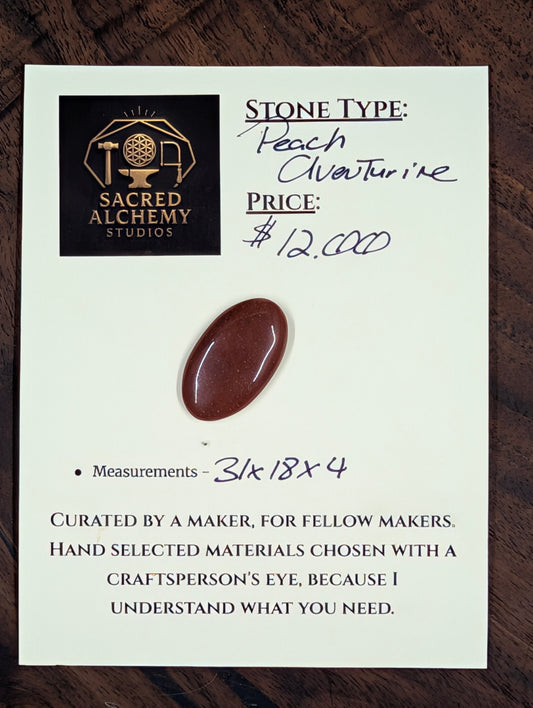 SACRED
ALCHEMY
STUDIOS
STONE TYPE:
Peach
Aventurine
PRICE:
$12.00
• Measurements - 31x18x4
CURATED BY A MAKER, FOR FELLOW MAKERS.
HAND SELECTED MATERIALS CHOSEN WITH A
CRAFTSPERSON'S EYE, BECAUSE I
UNDERSTAND WHAT YOU NEED.